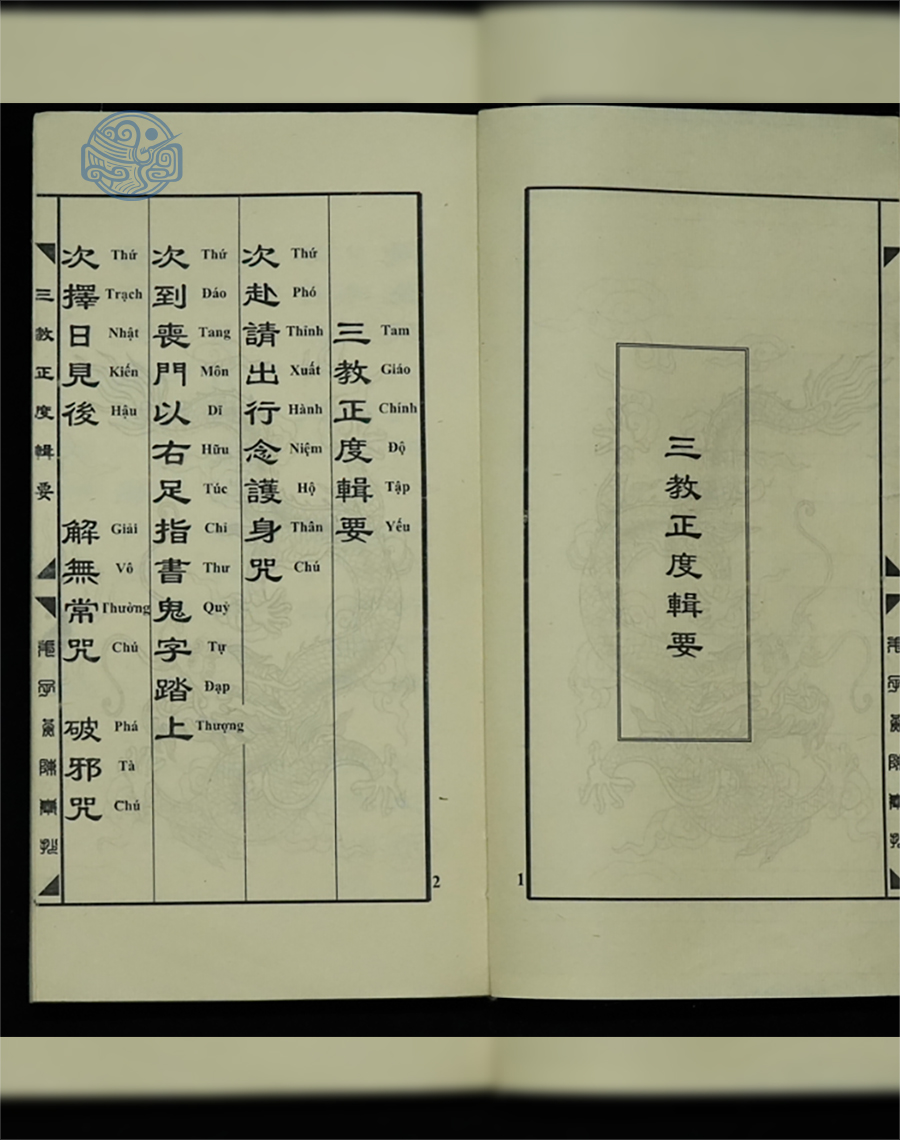 三教正度輯要
1
三教正度輯要
Tam Giáo Chính Độ Tập Yếu
次赴請出行念護身咒
Thứ Phó Thỉnh Xuất Hành Niệm Hộ Thân Chú
次到喪門以右足指書鬼字踏上
Thứ Dáo Tang Môn Dĩ Hữu Túc Chỉ Thư Quỷ Tự Đạp Thượng
次擇日見後 解無常咒 破邪咒
Thứ Trạch Nhật Kiến Hậu Giải Vô Thường Chú Phá Tà Chú
三教正度輯要
2